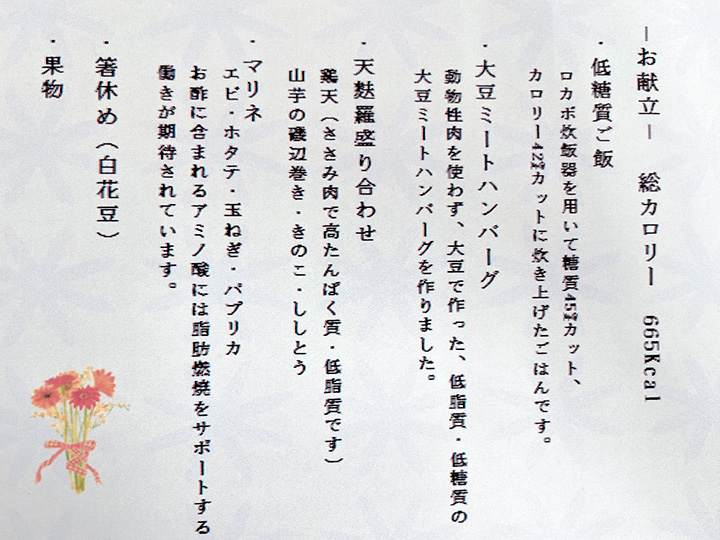 －お献立－　総カロリー　665Kcal
・低糖質ご飯
ロカボ炊飯器を用いて糖質45%カット、
カロリー42%カットに炊き上げたごはんです。
・大豆ミートハンバーグ
動物性肉を使わず、大豆で作った、低脂質・低糖質の
大豆ミートハンバーグを作りました。
・天麩羅盛り合わせ
鶏天（ささみ肉で高たんぱく質・低脂質です）
山芋の磯辺巻き・きのこ・ししとう
・マリネ
エビ・ホタテ・玉ねぎ・パプリカ
お酢に含まれるアミノ酸には脂肪燃焼をサポートする
働きが期待されています。
・箸休め（白花豆）
・果物